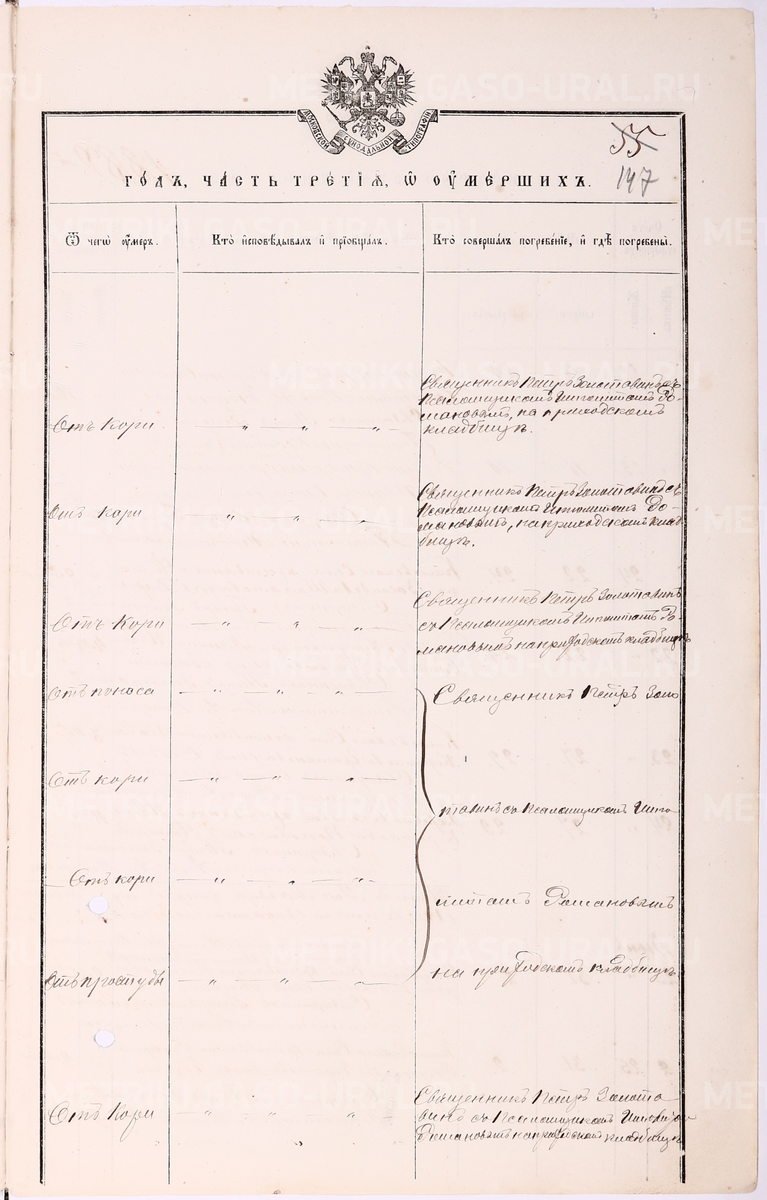 МОСКОВСКОЙ СѴНОДАЛЬНОЙ ТИПОГРАФІИ
55
147
ГО́ДЪ, ЧА́СТЬ ТРЕ́ТІѦ, Ѡ҆ ОУ҆МЕ́РШИХЪ.
Ѿ чегѡ̀ оу҆́меръ.
Кто̀ и҆сповѣ́дывалъ и҆ прїѡбща́лъ.
Кто̀ соверша́лъ погребе́нїе, и҆ гдѣ̀ погребены̀.
Отъ Кори
Священникъ Петръ Золотавинъ съ
Псаломщикомъ Ипполитомъ Ро-
мановымъ, на приходскомъ
кладбищѣ.
Отъ кори
Священникъ Петръ Золотавинъ съ
Псаломщикомъ Ипполитомъ Ро-
мановымъ, на приходскомъ клад
бищѣ.
Отъ Кори
Священникъ Петръ Золотавинъ
съ Псаломщикомъ Ипполитомъ Ро-
мановымъ на приходскомъ кладбищѣ
Отъ поноса
Священникъ Петръ Золо
Отъ кори
тавинъ съ Псаломщикомъ Иппо-
Отъ кори
литомъ Романовымъ
Отъ простуды
на приходскомъ кладбищѣ
Отъ Кори
Священникъ Петръ Золота-
винъ съ Псаломщикомъ
Романовымъ на приходскомъ кладбищѣ